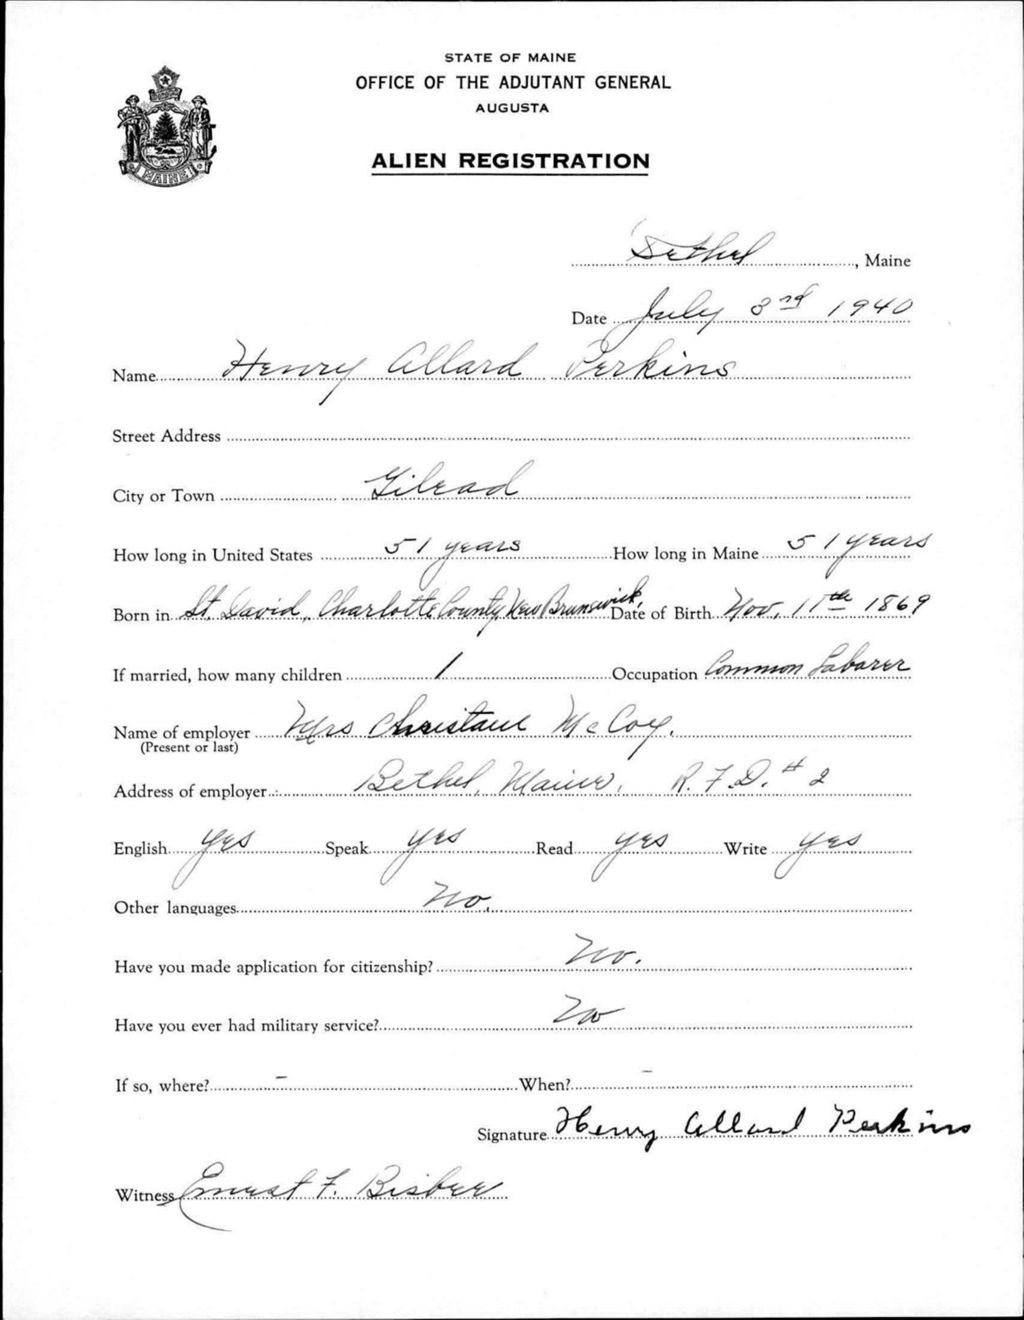 STATE OF MAINE
OFFICE OF THE ADJUTANT GENERAL
AUGUSTA
ALIEN REGISTRATION
MAINE
Bethel, Maine
Date July 3rd 1940
Name Henry Allard Perkins
Street Address
City or Town Gilead
How long in United States 51 years How long in Maine 51 years
Born in St. David, Charlotte County, New Brunswick, Date of Birth Nov. 11th 1869
If married, how many children 1 Occupation Common Laborer
Name of employer Mrs McCoy.
(Present or last)
Address of employer Bethel, Maine, R.F.D. # 2
English yes Speak yes Read yes Write yes
Other languages No.
Have you made application for citizenship? No.
Have you ever had military service? No
If so, where? - When? -
Signature Henry Allard Perkins
Witness Ernest F. Bisbee